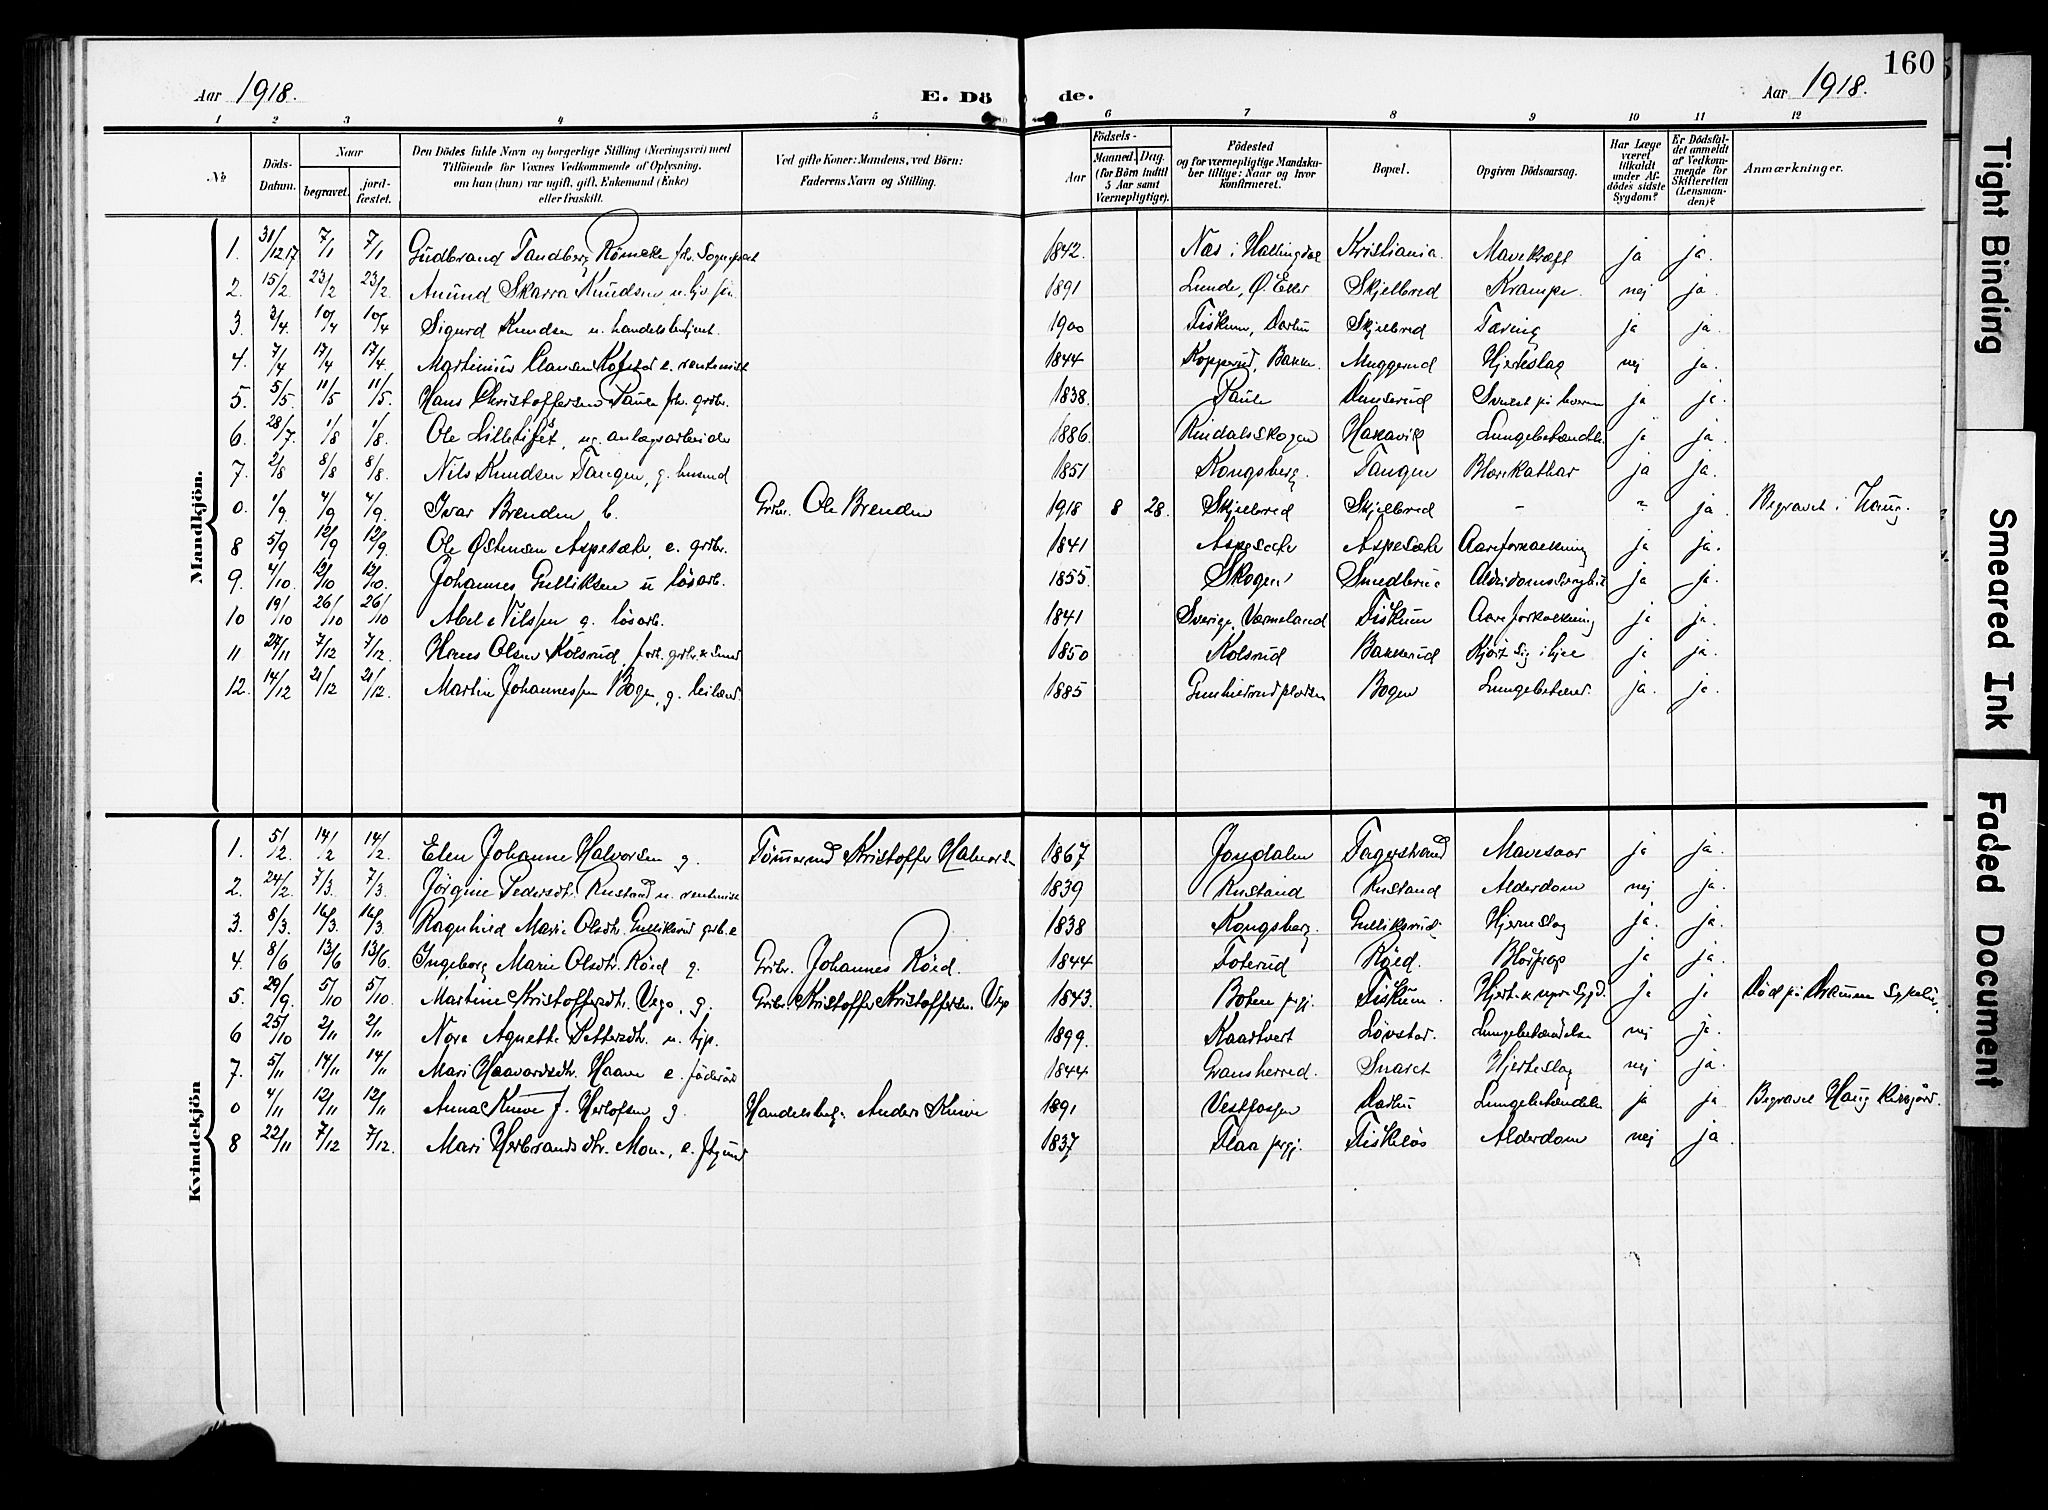 160
Aar 1918. E. Dö de. Aar 1918.
1 2 3 4 5 6 7 8 9 10 11 12
No
Döds-Datum.
Naar
begravet.
jord-fæstet.
Den Dödes fulde Navn og borgerlige Stilling (Næringsvei) med
Tilföiende for Voxnes Vedkommende af Oplysning.
om han (hun) var ugift, gift, Enkemand (Enke)
eller fraskilt.
Ved gifte Koner: Mandens, ved Börn:
Faderens Navn og Stilling.
Födsels-
Aar
Maaned. Dag.
(for Börn indtil
5 Aar samt
Værnepligtige).
Födested
og for værnepligtige Mandska-
ber tillige: Naar og hvor
konfirmeret.
Bopæl.
Opgiven Dödsaarsag.
Har Læge
været
tilkaldt
under Af-
dödes sidste
Sygdom?
Er Dödsfal-
det anmeldt
af Vedkom-
mende for
Skifteretten
(Lensman-
den)?
Anmærkninger.
Mandkjön.
1. 31/12 17 7/1 7/1 Gudbrand Tandberg Römcke fh. Sogneprest 1842. Nes i Hallingdal Kristiania. Mavekræft ja ja.
2. 15/2 23/2 23/2. Amund Skarra Knudsen u. 1891 Lunde, Ø. Eker Skjelbred Krampe. nej ja.
3. 3/4. 10/4 10/4 Sigurd Knudsen u. handelsbetjent. 1900 Fiskum, Darbu Skjelbred Tæring ja ja.
4. 7/4 17/4 17/4. Martinius Clausen Kopstad e. rentenist 1844 Kopperud, Bakke. Muggerud Hjerteslag nej ja.
5. 5/5. 11/5 11/5. Hans Christoffersen Paule fh. grdbr. 1838. Paule Damsrud ja ja.
6. 28/7. 1/8 1/8. Ole Lilletufet, ug. anlægsarbeider 1886. Rindalsskogen Hakavik Lungebetændelse ja ja.
7. 2/8 8/8 8/8. Nils Knudsen Tangen, g. husmd 1851 Kongsberg. Tangen Blærekathar ja ja.
0. 1/9. 4/9 4/9. Ivar Brenden b. Grbr. Ole Brenden 1918 8 28. Skjelbred Skjelbred - " ja. Begravet i Haug.
8 5/9 12/9 12/9. Ole Østensen Aspesæte, e. grdbr. 1841 Aspesæte Aspesæte Aareforkalkning ja ja.
9. 4/10. 12/10 12/10. Johannes Gulliksen u løsarb. 1855. Skogen Smedbrua ja ja.
10 19/10 26/10 26/10 Abel Nilssen g. løsarb. 1841 Sverige, Værmeland Fiskum Aareforkalkning ja ja.
11 27/11 7/12 7/12. Hans Olsen Kolsrud, forh. grbr. & smed 1850 Kolsrud Bakkerud Kjørt sig ihjel ja ja.
12. 14/12 21/12 21/12. Martin Johannessen Bogen, g. leilænd. 1885 Gunhildrudpladsen Bogen Lungebetænd. ja. ja.
Kvindekjön
1. 5/2. 14/2 14/2. Elen Johanne Halvorsen g. Tømmermd Kristoffer Halvorsen 1867 Jondalen Fagerstrand Mavesaar ja ja.
2. 24/2. 7/3. 7/3. Jørgine Pedersdtr. Rustand u. rentenist 1839 Rustand Rustand Alderdom nej ja.
3. 8/3. 16/3. 16/3. Ragnhild Marie Olsdtr. Gulliksrud grbr. e 1838 Kongsberg. Gulliksrud. Hjerneslag ja. ja.
4. 8/6 13/6 13/6. Ingeborg Marie Olsdtr. Röed g. Grbr. Johannes Röed. 1844 Foterud Röed. ja ja.
5. 29/9. 5/10 5/10. Martine Kristoffersdtr. Vego, g. Grbr. Kristoffer Kristoffersen Vego 1843. Botten prgj. Fiskum. Hjerte & nyre Sygd. ja ja Död på Drammen Sykehus.
6 25/10 2/11 2/11. Nora Agnethe Pettersdtr. u. tjp. 1899. Kaartvert Løvstad. Lungebetændelse nej ja.
7. 5/11 14/11 14/11 Mari Haavardsdtr. Haave e. föderåd 1844 Gransherred. Snaret Hjerteslag nej ja.
0 4/11 12/11 12/11. Anna Knive f. Herlofsen g. Handelsbestg. Anders Knive 1891 Vestfossen Darbu Lungebetændelse ja ja Begravet Haug kirkegård.
8 22/11 7/12 7/12. Mari Herbrandsdtr. Moen, e. 1837 Flaa prgj. Fiskeløs Alderdom nej ja
Tight Binding
Smeared Ink
Faded Document